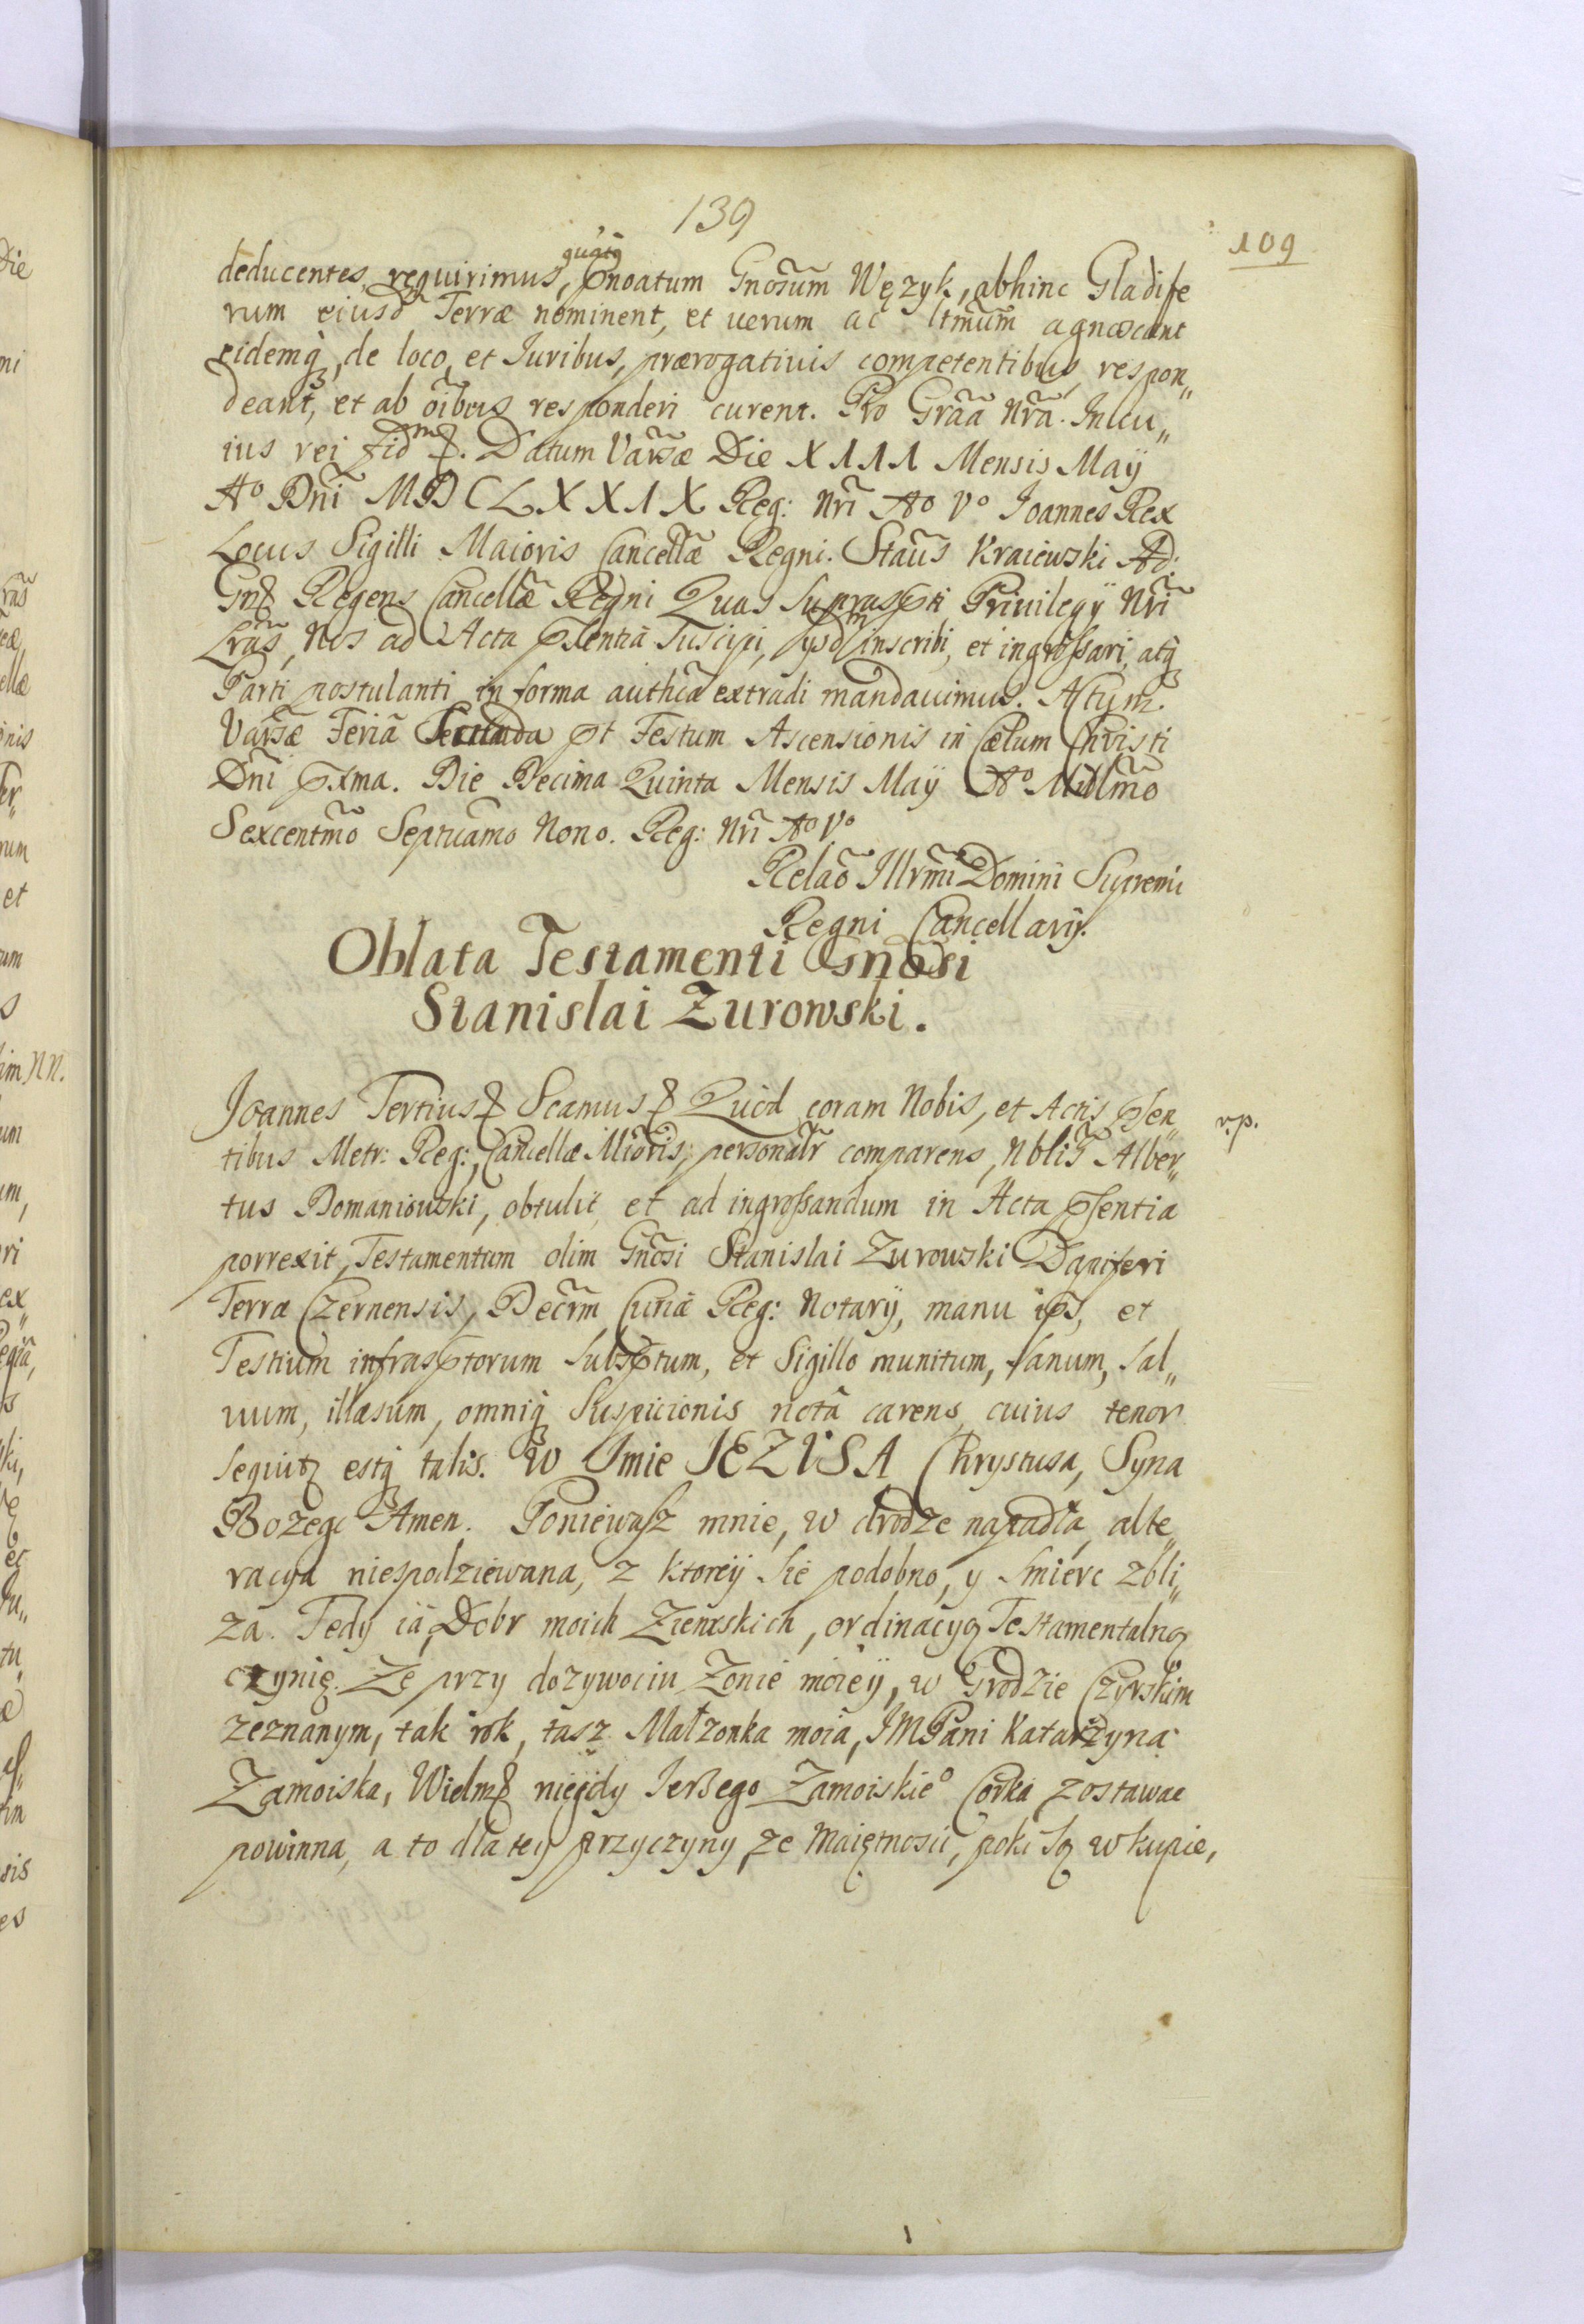 139
109
quatq̃
deducentes, requirimus, p̃noatum Gnosũm Węzyk, abhinc Gladife
rum eiusd̃ Terræ nominent, et uerum ac ltm̃um agnoscant
eidemq̃, de loco, et Iuribus, prærogatiuis competentibus respon„
deant, et ab õibus responderi curent. Pro Grãa Nrã. In cu„
ius rei fidm &. Datum Varsæ Die XIII Mensis Maÿ
Aº Dñi MDCLXXIX Reg: Nrĩ Aº Vº Joannes Rex
Locus Sigilli Maioris Cancellæ Regni. Stañs Kraiewski Ad:
Gn& Regens Cancellæ Regni Quas suprasp̃ti Priuilegÿ Nrĩ
Lrãs, Nos ad Acta p̃sentia suscipi, ÿsdm inscribi, et ingroſsari, atq̃
Parti postulanti in forma authca extradi mandauimus. Actum.
Varsæ Feriã Secunda p̃t Festum Ascensionis in Cælum Christi
Dñi p̃xma. Die Decima Quinta Mensis Maÿ Aº Millmõ
Sexcentmõ Septuamo Nono. Reg: Nrĩ Aº Vº
Relaõ Illrm̃i Domini Supremi
Regni Cancellarÿ.
Oblata Testamenti Gnõsi
Stanislai Zurowski.
Joannes Tertius & Scamus & Quod coram Nobis, et Actis p̃sen„
v.p.
tibus Metr: Reg:, Cancellæ Mioris, personalr̃ comparens, Nblis̃ Alber„
tus Domaniowski, obtulit, et ad ingroſsandum in Acta p̃sentia
porrexit, Testamentum olim Gnõsi Stanislai Zurowski Dapiferi
Terræ Czernensis, Decrm̃ Curiæ Reg: Notarÿ, manu ip̃s, et
Testium infrasp̃torum subsp̃tum, et Sigillo munitum, sanum, sal„
uum, illæsum, omniq̃ suspicionis notâ carens, cuius tenor
sequitr estq̃ talis. W Imie JEZVSA Chrystusa, Syna
Bozego Amen. Poniewaſz mnie, w drodze napadła, alte„
racya niespodziewana, z ktoreÿ sie podobno, y smierc zbli„
za. Tedy ia, Dobr moich Ziemskich, ordinacyą Testamentalną
czynię. Ze przy dozywociu Zonie moieÿ, w Grodzie Czyrskim
zeznanym, tak rok, tasz Małzonka moia, JMPani Katarzyna
Zamoiska, Wielm& niegdy Jerzego Zamoiskiego Corka zostawac
powinna, a to dla tey przyczyny, ze Maiętnosci, poki są w kupie,